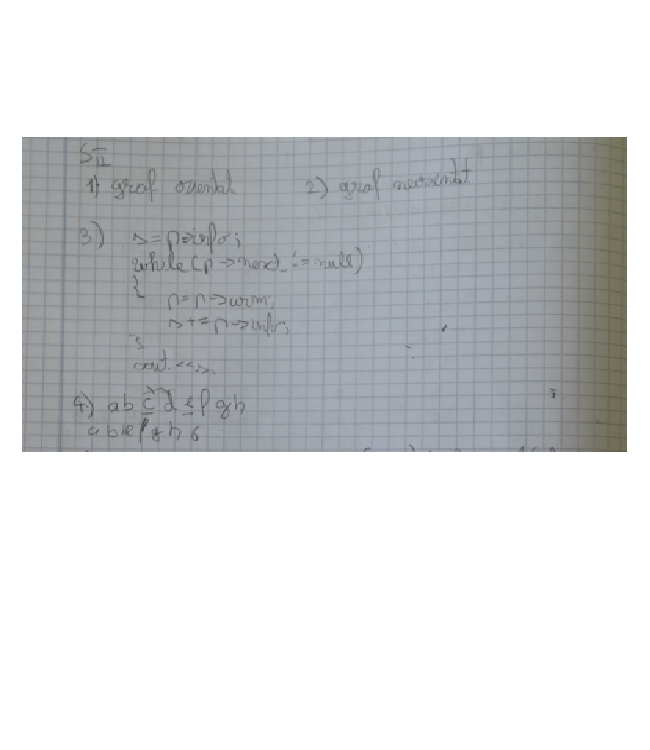 SII
1) graf orientat 2) graf neorientat
3) s=p->info;
while(p->next != null)
{
p=p->urm;
s+=p->info;
}
cout<<s.
4.) ab c d e f gh